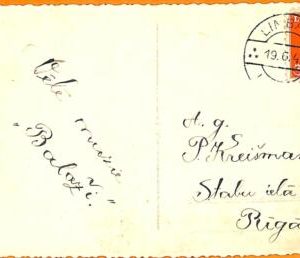 Vēlē
"Baloži".
LIM
19.6.4
A. g.
P. Kreišman
Stabu ielā
Rīgā